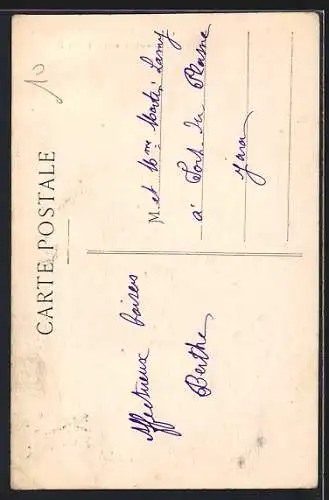 10
CARTE POSTALE
Affectueux baisers
Berthe
M. et Mme Lamy
à Port du Plasne
Jura